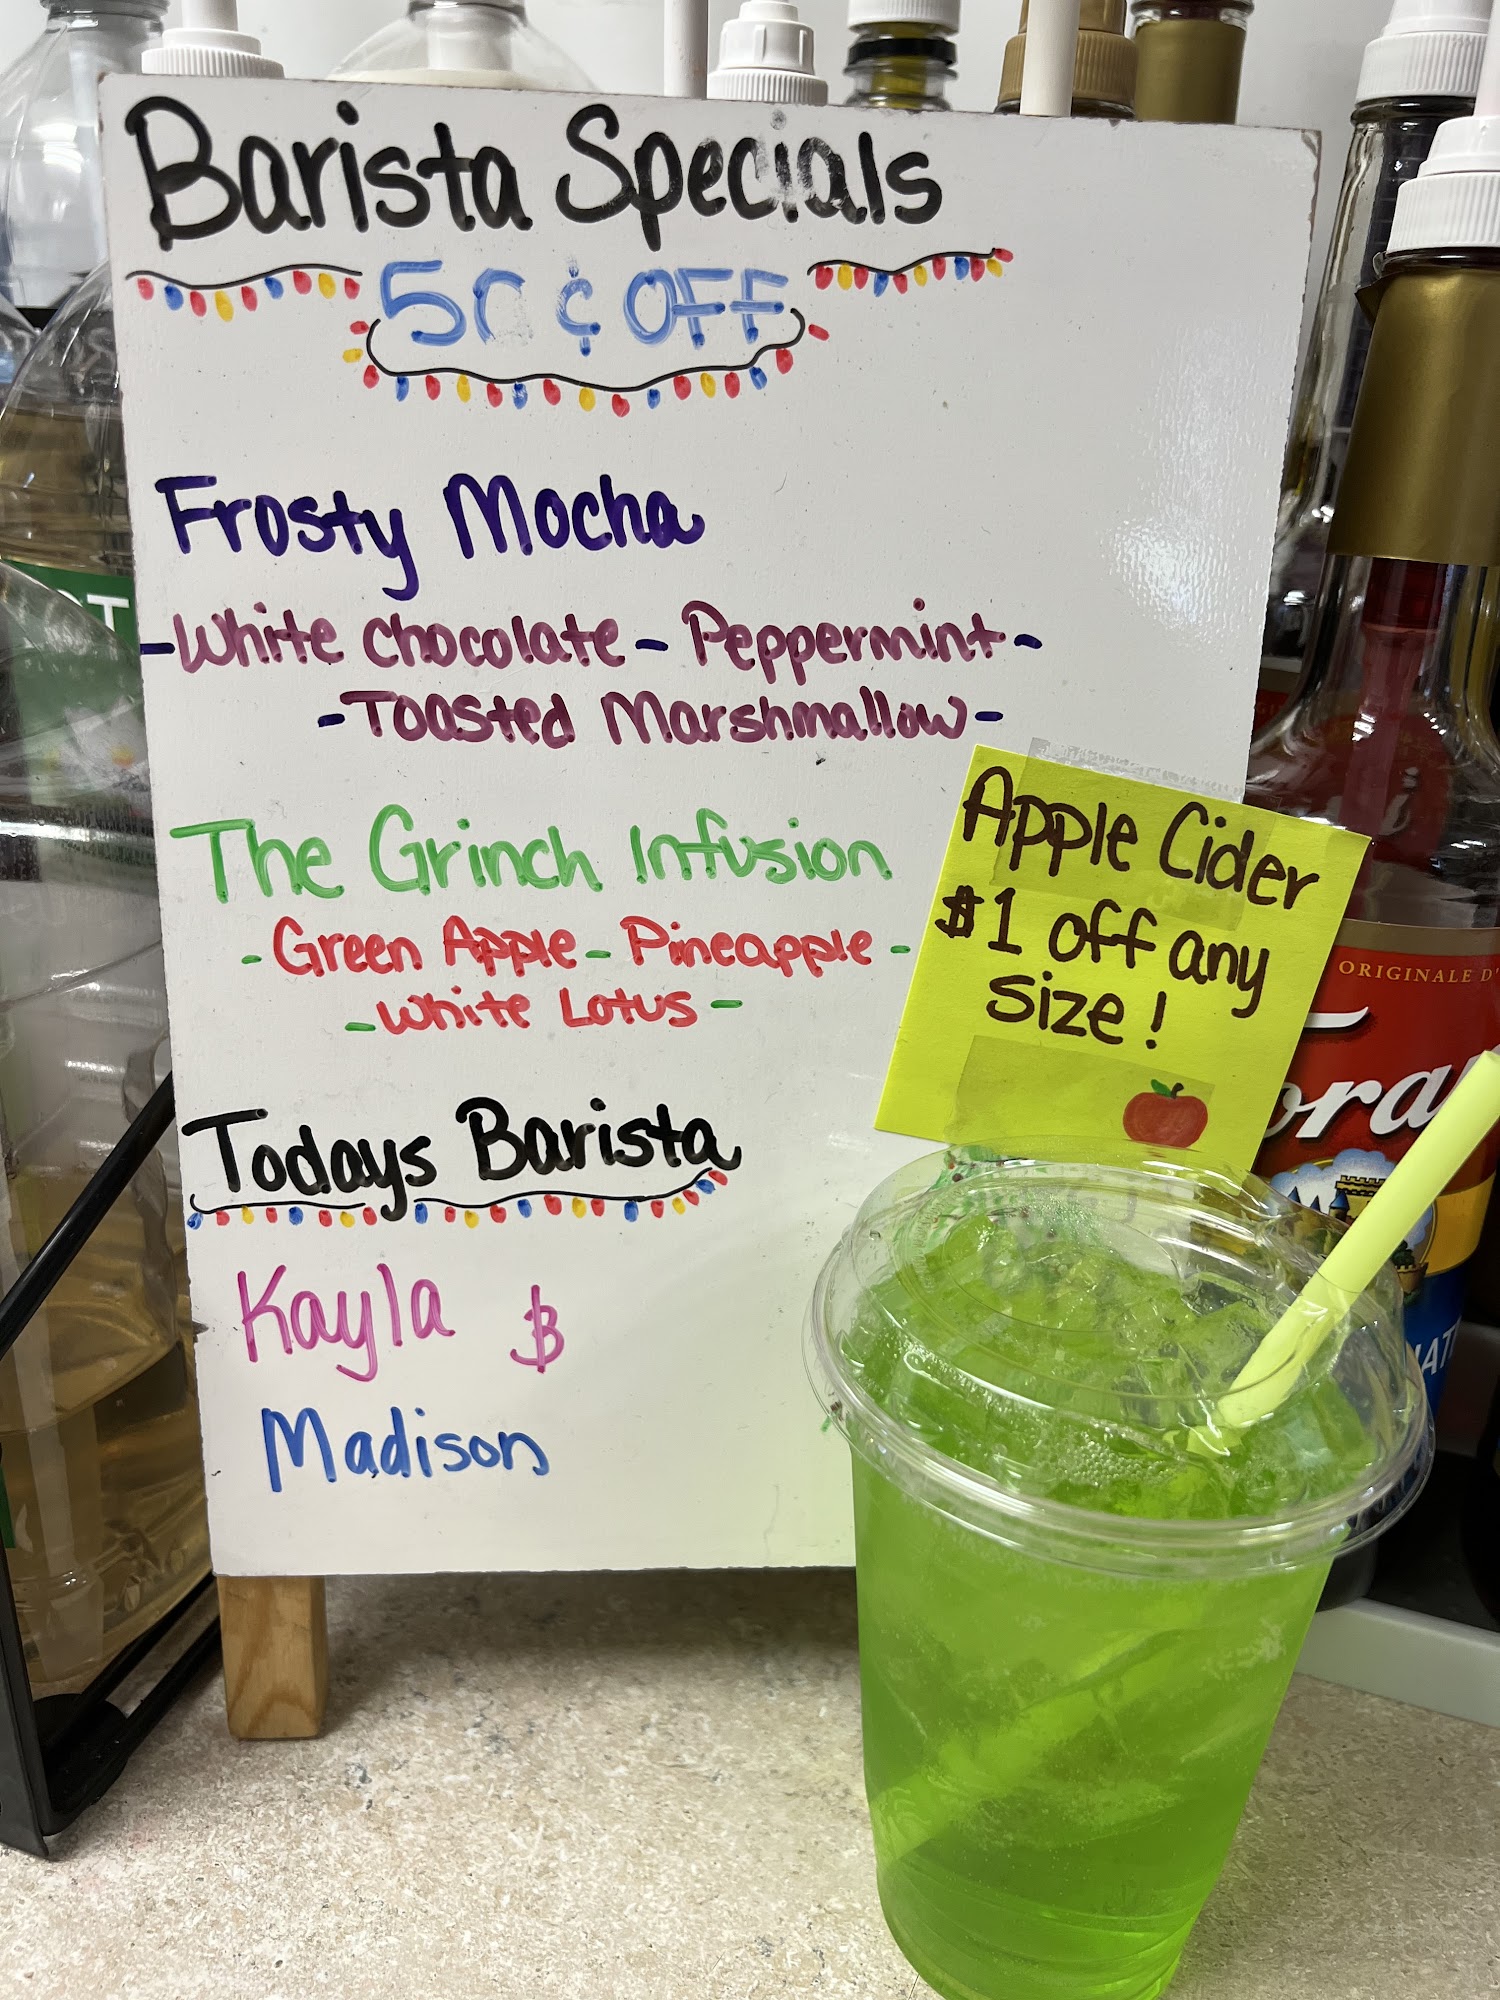 Barista Specials
50 ¢ OFF
Frosty Mocha
-White chocolate - Peppermint-
-Toasted Marshmallow-
The Grinch Infusion
-Green Apple- Pineapple-
-White Lotus-
Apple Cider
$1 off any
size!
Todays Barista
Kayla $
Madison
ORIGINALE